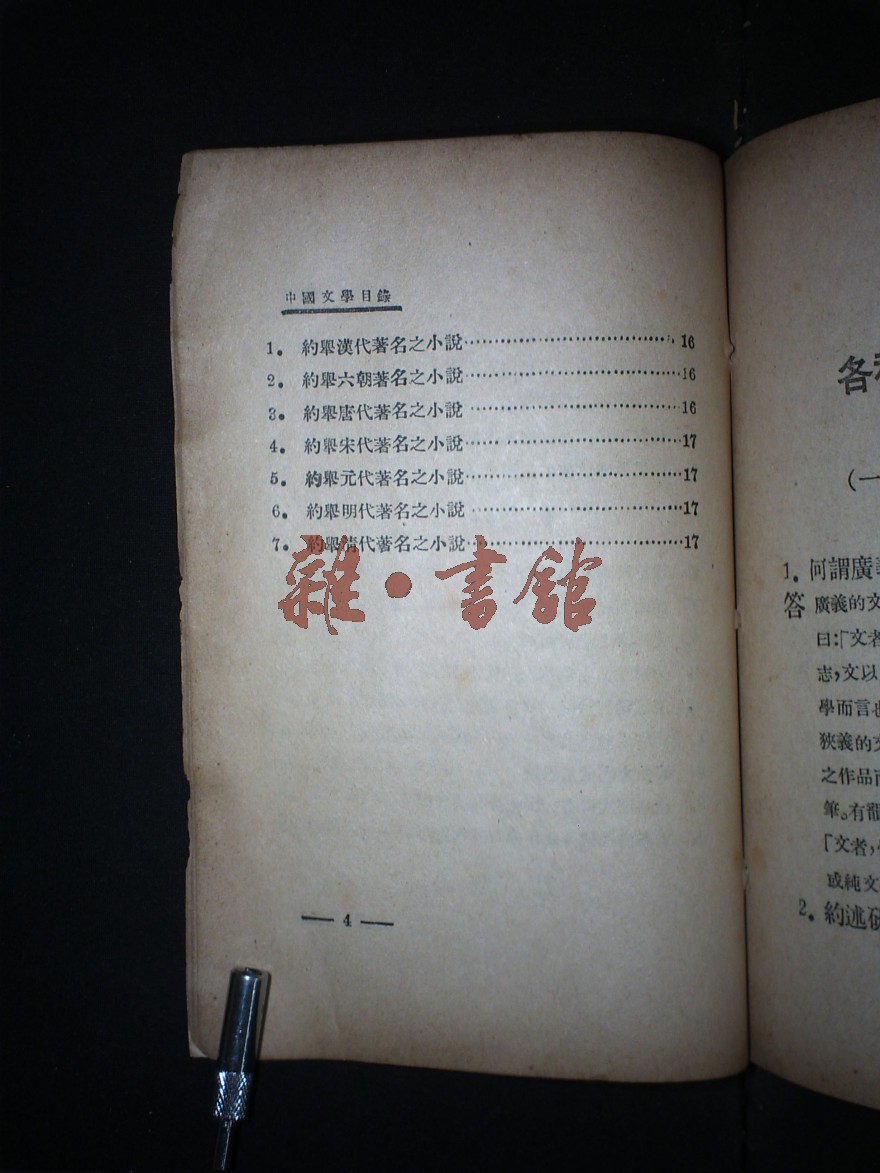 中國文學目錄
1. 約舉漢代著名之小說……16
2. 約舉六朝著名之小說……16
3. 約舉唐代著名之小說……16
4. 約舉宋代著名之小說……17
5. 約舉元代著名之小說……17
6. 約舉明代著名之小說……17
7. 約舉清代著名之小說……17
雜·書館
— 4 —
各
(一
1. 何謂廣
答 廣義的文
曰:「文者
志,文以
學而言也
狹義的文
之作品而
筆。有韻
「文者,
或純文
2. 約述研